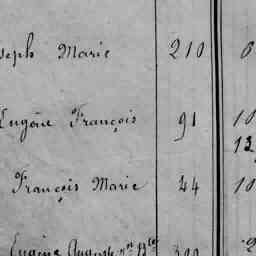 seph Marie 210 0
Eugène François 91 10
12
François Marie 44 10
Eugène Auguste